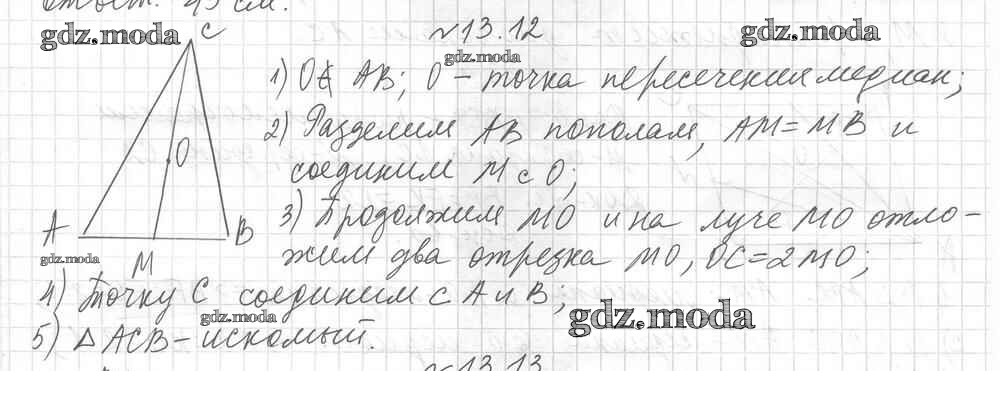 Ответ: 45 см.
gdz.moda
C
№13.12
gdz.moda
gdz.moda
1) O∉ AB; O – точка пересечения медиан;
2) Разделим AB пополам, AM = MB и
соединим M с O;
O
3) Продолжим MO и на луче MO отло-
жим два отрезка MO, OC = 2MO;
A
B
gdz.moda
M
4) Точку C соединим с A и B;
gdz.moda
gdz.moda
5) △ ACB – искомый.
№13.13